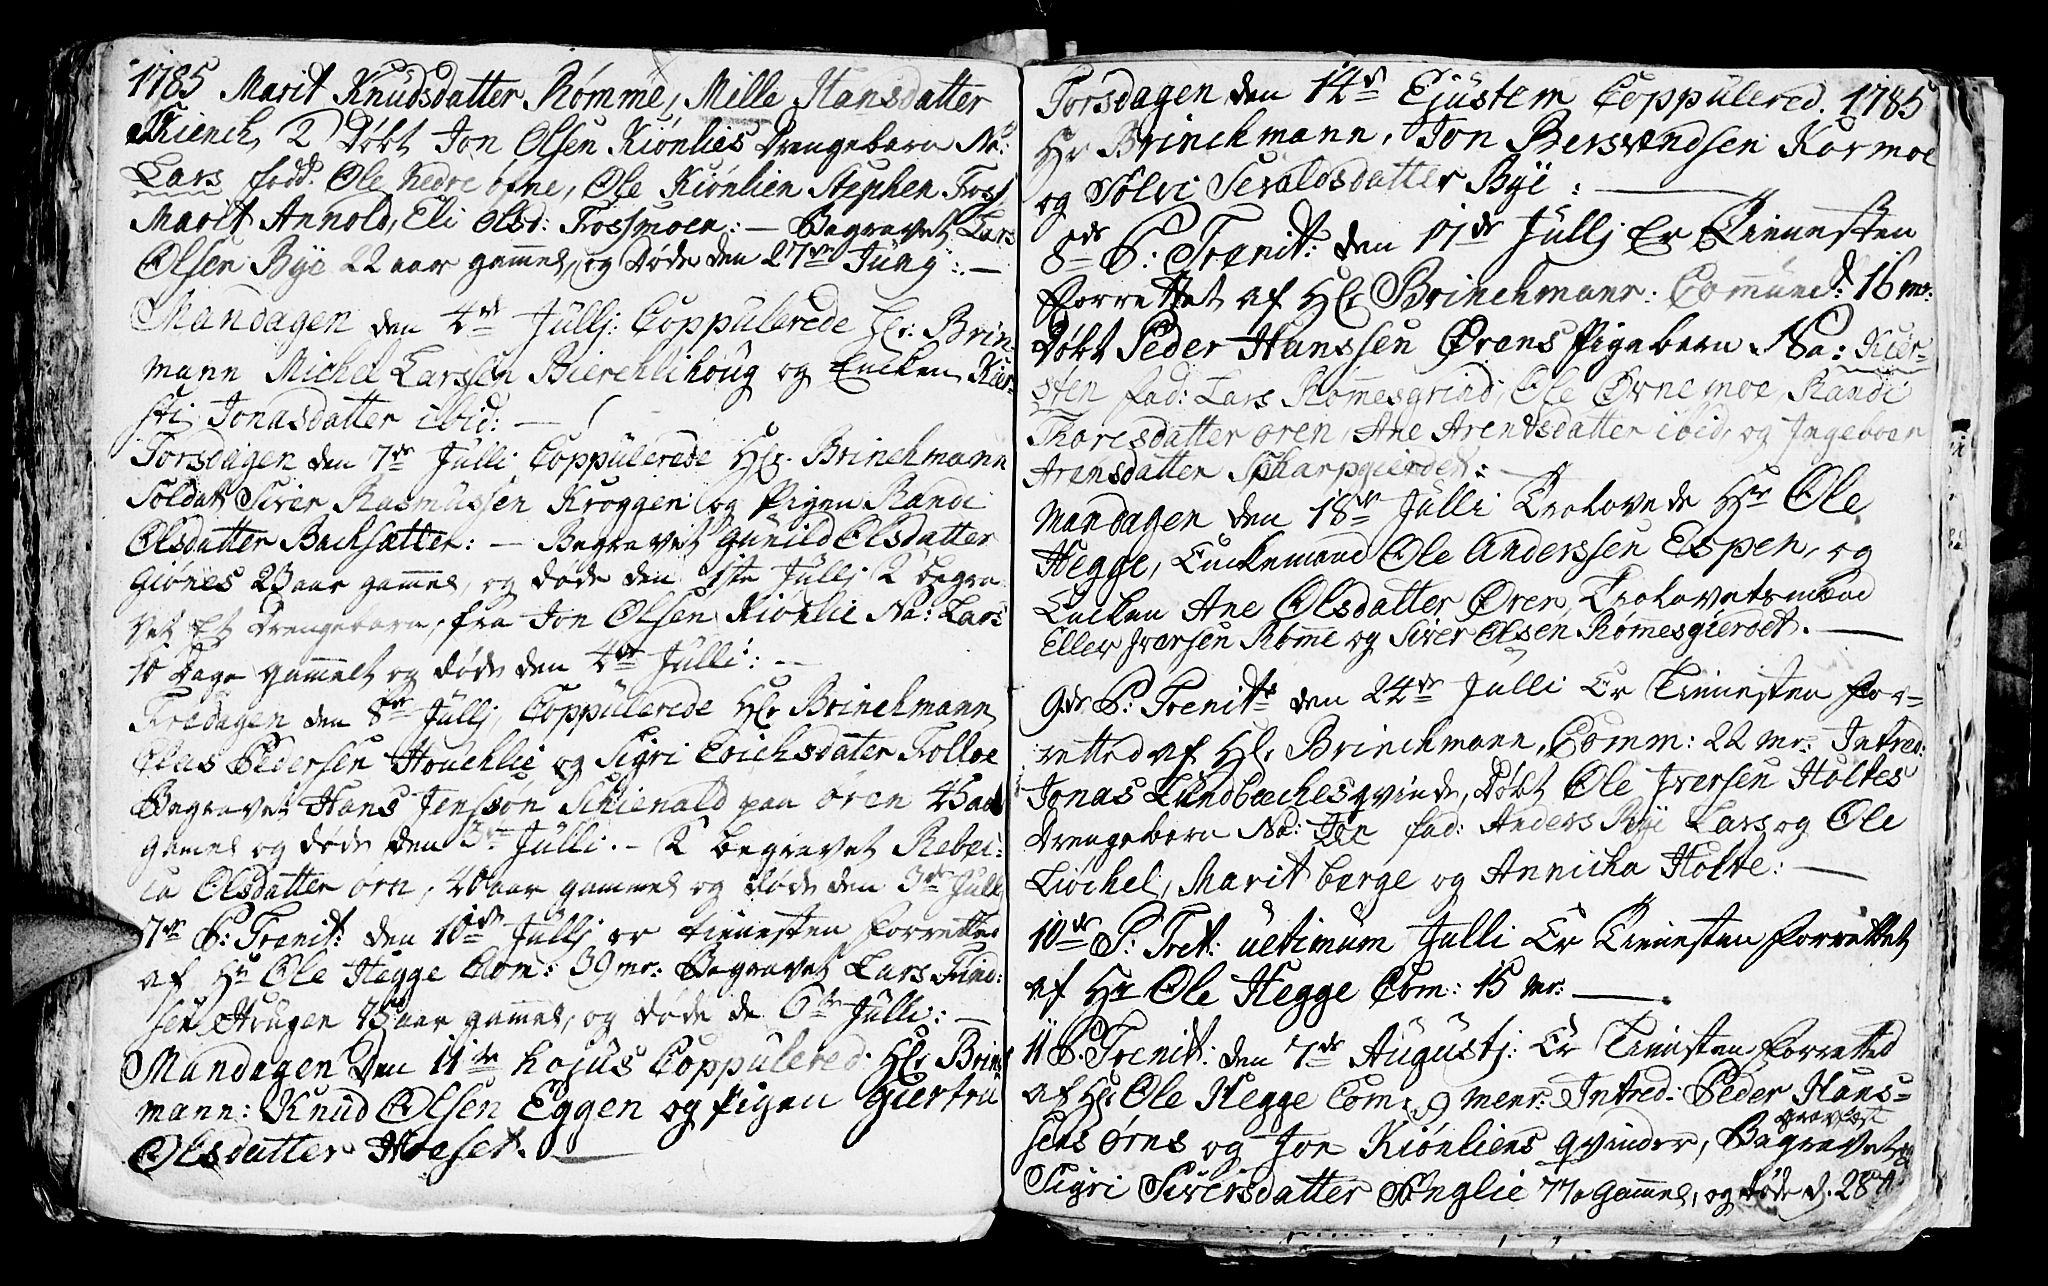 1785 Marit Knudsdatter Rømme, Mille Hansdatter
Skiench, 2 døbt Jon Olsen Kiønlies drengebarn Na:
Lars fadd: Ole nedre öfne, Ole Kiønlien Stephen Foss
Marit Annold, Eli Olsd: Fossmoen: — Begravet Lars
Olsen Bye 22 aar gammel, og døde den 27de Juny: —
Mandagen den 4de Julij: Coppulerede Hr: Brin-
mann Michel Larssen Bierchlihoug og Encken Kier-
sti Jonasdatter ibid: —
Torsdagen den 7de Julli Coppulerede Hr. Brinchmann
Soldat Siver Rasmussen Kroggen og Pigen Randi
Olsdatter Bachsætter: — Begravet Gunild Olsdatter
Giønes 23 aar gammel, og døde den 1ste Julij 2 begra
vet Et drengebarn, fra Jon Olsen Kiønlie Na: Lars
10 dage gammelt og døde den 4de Julli: —
Fredagen den 8de Julij, Coppulerede Hr Brinchmann
Pedersen Houchlie og Sigri Erichsdater Folloe
Begravet Hans Jenssøn Schienald paa ören 45 aar
gamel og døde den 3de Julli. — 2 begravet Rebec-
ca Olsdatter örn, 40 aar gammel og døde den 3de Julli
7de S: Trenit: den 10de Julij er tienesten forrettet
af Hr Ole Hegge Com: 39 mr: Begravet Lars
sen Hougen 75 aar gammel, og døde de 6de Julli: —
Mandagen den 11de hojus Coppulered Hr Brinch
mann: Knud Olsen Eggen og Pigen Giertru
Olsdatter Hoeset. —
Torsdagen den 14de Ejustem Coppulered. 1785
Hr Brinchmann, Jon Bersvendsen Kormoe
og Sølvi Sevaldsdatter Bye: —
8de S: Trenit: den 17de Julij Er Tienesten
forrettet af Hr Brinchmann: Comunic: 16 mr:
Døbt Peder Hanssen Ørens Pigebarn Na: Kier-
sten fad: Lars Rømesgrind, Ole Øvnemoe Randi
Thoresdatter ören, Ane Arentsdatter ibid, og Ingeboer
Arensdatter Scharpgierdet: —
Mandagen den 18de Julli Trolovede Hr Ole
Hegge, Enckemand Ole Anderssen Espen, og
Encken Ane Olsdatter Øren, Trolovetsmænd
Ellev Iversen Rømme og Siver Olsen Rømmesgierdet. —
9de S: Trenit: den 24de Julli Er Tienesten for-
retted af Hr Brinchmann, Comm: 22 mr: Intred:
Jonas Lundbæches qvinde, Døbt Ole Iversen Holtes
Drengebarn Na: Jon fad: Anders Bye Lars og Ole
Liøchel, Marit berge og Annicha Holte: —
10de S: Tret: ultimum Julli Er Tienesten forrettet
af Hr Ole Hegge Com: 15 mr: —
11 S. Trenit: den 7de Augustj: Er Tienesten forretted
af Hr Ole Hegge Com: 9 menr: Intred: Peder Hans-
sens örns og Jon Kiønliens qvinder, Begravet
Sigri Siversdatter Englie 77 a gammel, og døde d. 28de